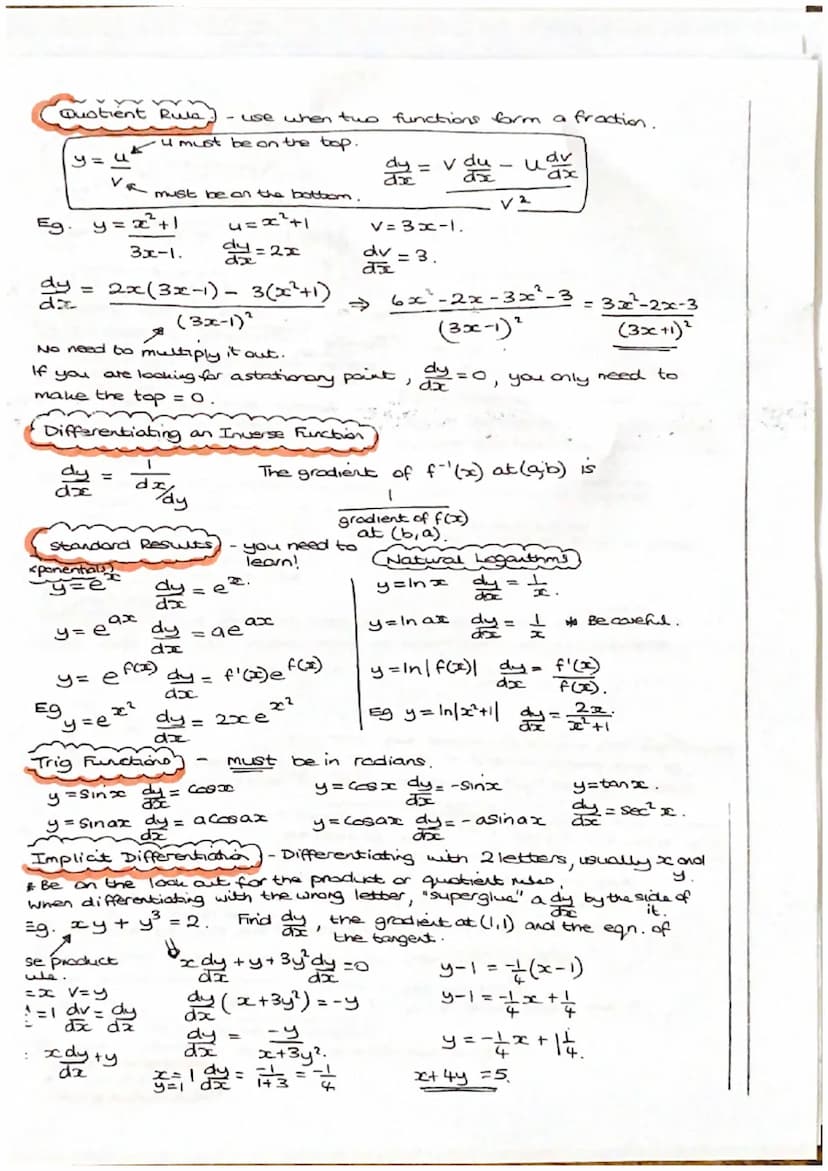 Quotient Rule. - use when two functions form a fraction.
y = u/v u must be on the top. dy/dx = (v du/dx - u dv/dx)/v²
must be on the bottom.
Eg. y = (x²+1)/(3x-1). u = x²+1 v = 3x-1.
dy/dx = 2x dv/dx = 3.
dy/dx = (2x(3x-1) - 3(x²+1))/(3x-1)² ⇒ (6x²-2x-3x²-3)/(3x-1)² = (3x²-2x-3)/(3x+1)²
No need to multiply it out.
If you are looking for a stationary point, dy/dx = 0, you only need to
make the top = 0.
Differentiating an Inverse Function
dy/dx = 1/(dx/dy) The gradient of f⁻¹(x) at (a,b) is
1/(gradient of f(x) at (b,a).)
Standard Results - you need to learn!
xponentials
y = eˣ dy/dx = eˣ.
y = e^(ax) dy/dx = ae^(ax)
y = e^(f(x)) dy/dx = f'(x)e^(f(x))
Eg y = e^(x²) dy/dx = 2xe^(x²)
Natural Logarithms
y = ln x dy/dx = 1/x.
y = ln ax dy/dx = 1/x * Be careful.
y = ln|f(x)| dy/dx = f'(x)/f(x).
Eg y = ln|x²+1| dy/dx = 2x/(x²+1)
Trig Functions - must be in radians.
y = sin x dy/dx = cos x y = cos x dy/dx = -sin x y = tan x.
y = sin ax dy/dx = a cos ax y = cos ax dy/dx = -a sin ax dy/dx = sec² x.
Implicit Differentiation - Differentiating with 2 letters, usually x and y.
* Be on the look out for the product or quotient rules.
When differentiating with the wrong letter, "superglue" a dy/dx by the side of it.
Eg. xy + y³ = 2. Find dy/dx, the gradient at (1,1) and the eqn. of
the tangent.
se product
ule.
= x v = y
' = 1 dv/dx = dy/dx
: x dy/dx + y
x dy/dx + y + 3y² dy/dx = 0
dy/dx (x+3y²) = -y
dy/dx = -y/(x+3y²).
x=1 y=1 dy/dx = -1/(1+3) = -1/4
y-1 = -1/4(x-1)
y-1 = -1/4 x + 1/4
y = -1/4 x + 1 1/4.
x+4y = 5.